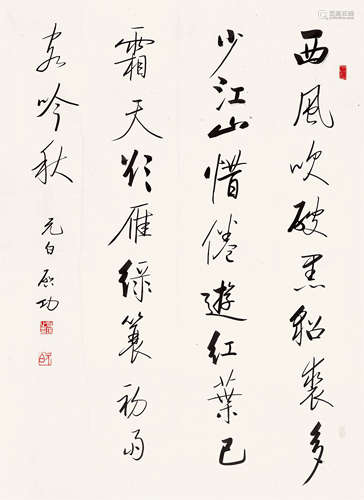 西風吹破黑貂裘多
少江山惜倦遊紅葉已
霜天欲雁綠蓑初雨
客吟秋
元白啟功